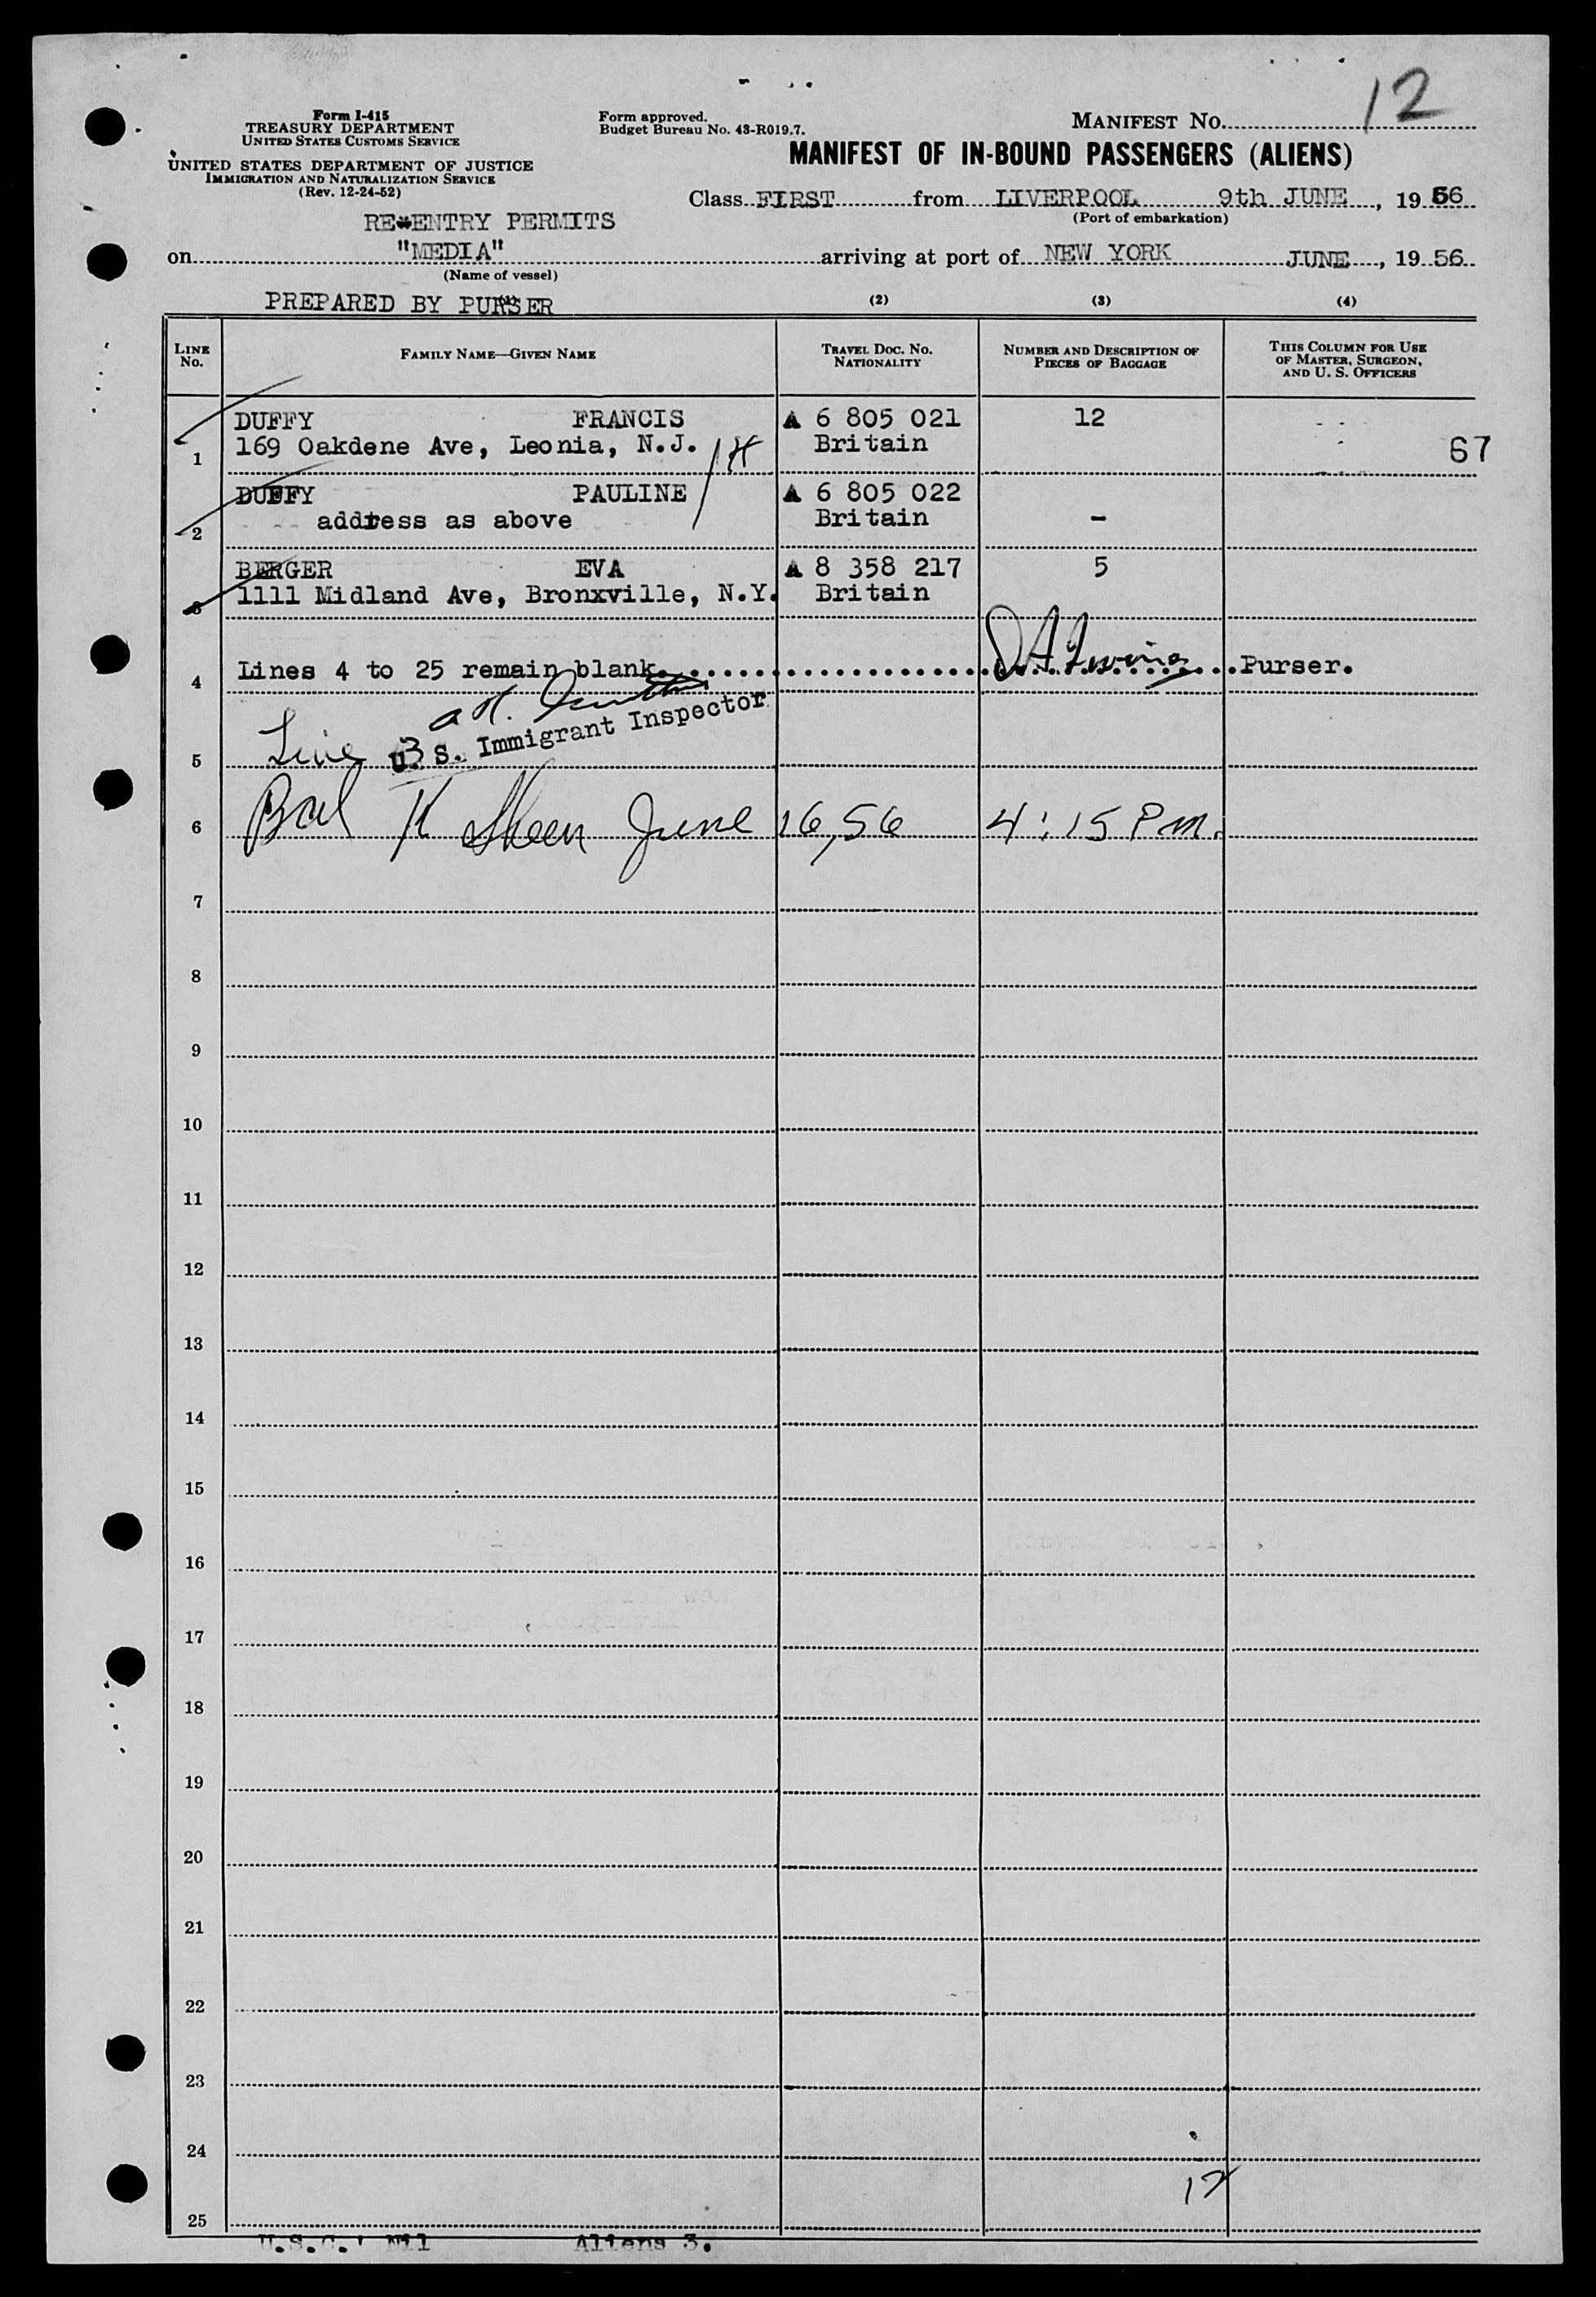 12
Form I-415
TREASURY DEPARTMENT
UNITED STATES CUSTOMS SERVICE
UNITED STATES DEPARTMENT OF JUSTICE
IMMIGRATION AND NATURALIZATION SERVICE
(Rev. 12-24-52)
Form approved.
Budget Bureau No. 43-R019.7.
MANIFEST NO.
MANIFEST OF IN-BOUND PASSENGERS (ALIENS)
Class FIRST from LIVERPOOL 9th JUNE, 19 56
(Port of embarkation)
RE-ENTRY PERMITS
on "MEDIA" arriving at port of NEW YORK JUNE, 19 56
(Name of vessel)
PREPARED BY PURSER (1) (2) (3) (4)
LINE NO. FAMILY NAME—GIVEN NAME TRAVEL DOC. NO. NATIONALITY NUMBER AND DESCRIPTION OF PIECES OF BAGGAGE THIS COLUMN FOR USE OF MASTER, SURGEON, AND U. S. OFFICERS
DUFFY FRANCIS A 6 805 021 12
1 169 Oakdene Ave, Leonia, N.J. Britain 67
DUFFY PAULINE A 6 805 022
2 address as above Britain -
BERGER EVA A 8 358 217 5
3 1111 Midland Ave, Bronxville, N.Y. Britain
4 Lines 4 to 25 remain blank. Purser.
U. S. Immigrant Inspector
5 Line 3
6 K Sheen June 16, 56 4:15 Pm.
7
8
9
10
11
12
13
14
15
16
17
18
19
20
21
22
23
24
12
25
U.S.C.: Nil Aliens 3.